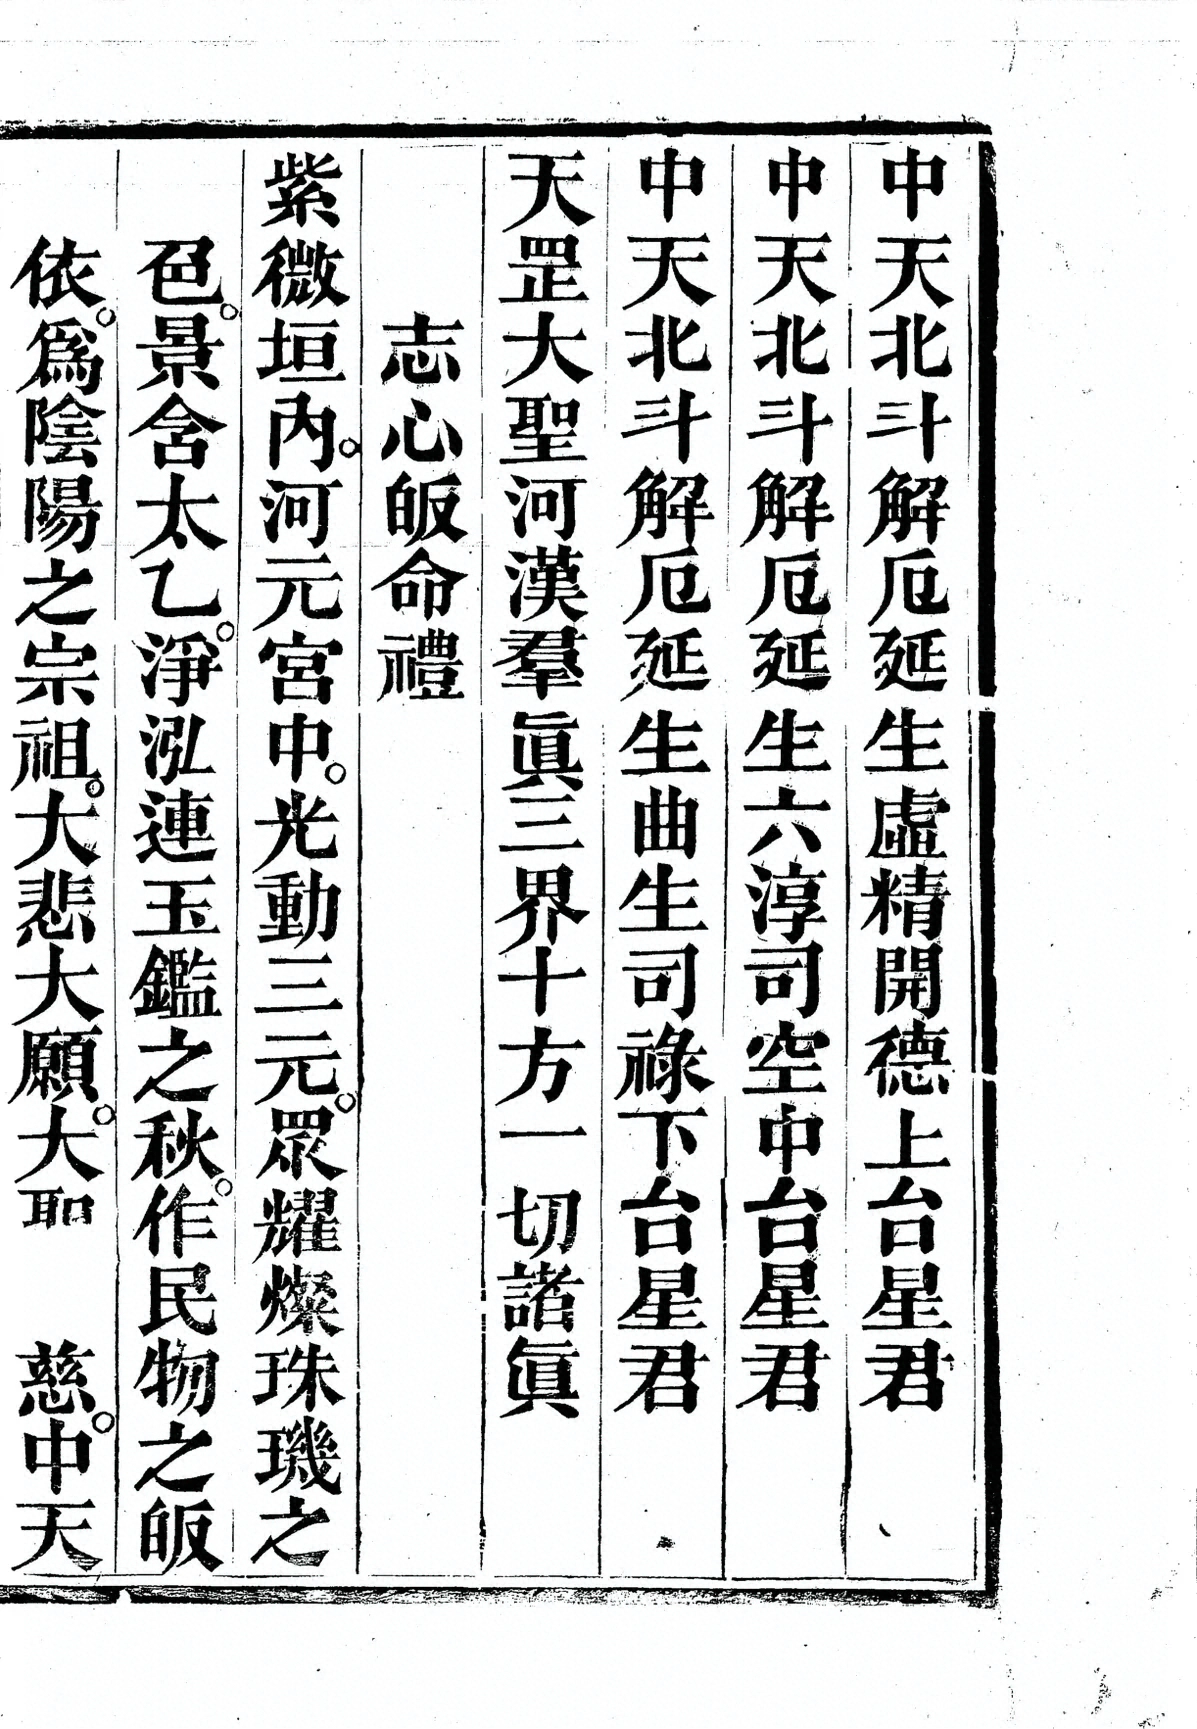 中天北斗解厄延生虛精開德上台星君
中天北斗解厄延生六淳司空中台星君
中天北斗解厄延生曲生司祿下台星君
天罡大聖河漢羣眞三界十方一切諸眞
志心皈命禮
紫微垣內。河元宮中。光動三元。眾耀燦珠璣之
色。景含太乙。淨泓連玉鑑之秋。作民物之皈
依。爲陰陽之宗祖。大悲大願。大 慈。中天